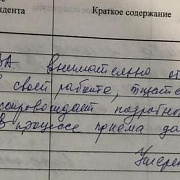 дента
Краткое содержание
ВА внимательно от
в своей работе, тщате
сопровождает подробно
В процессе приема да